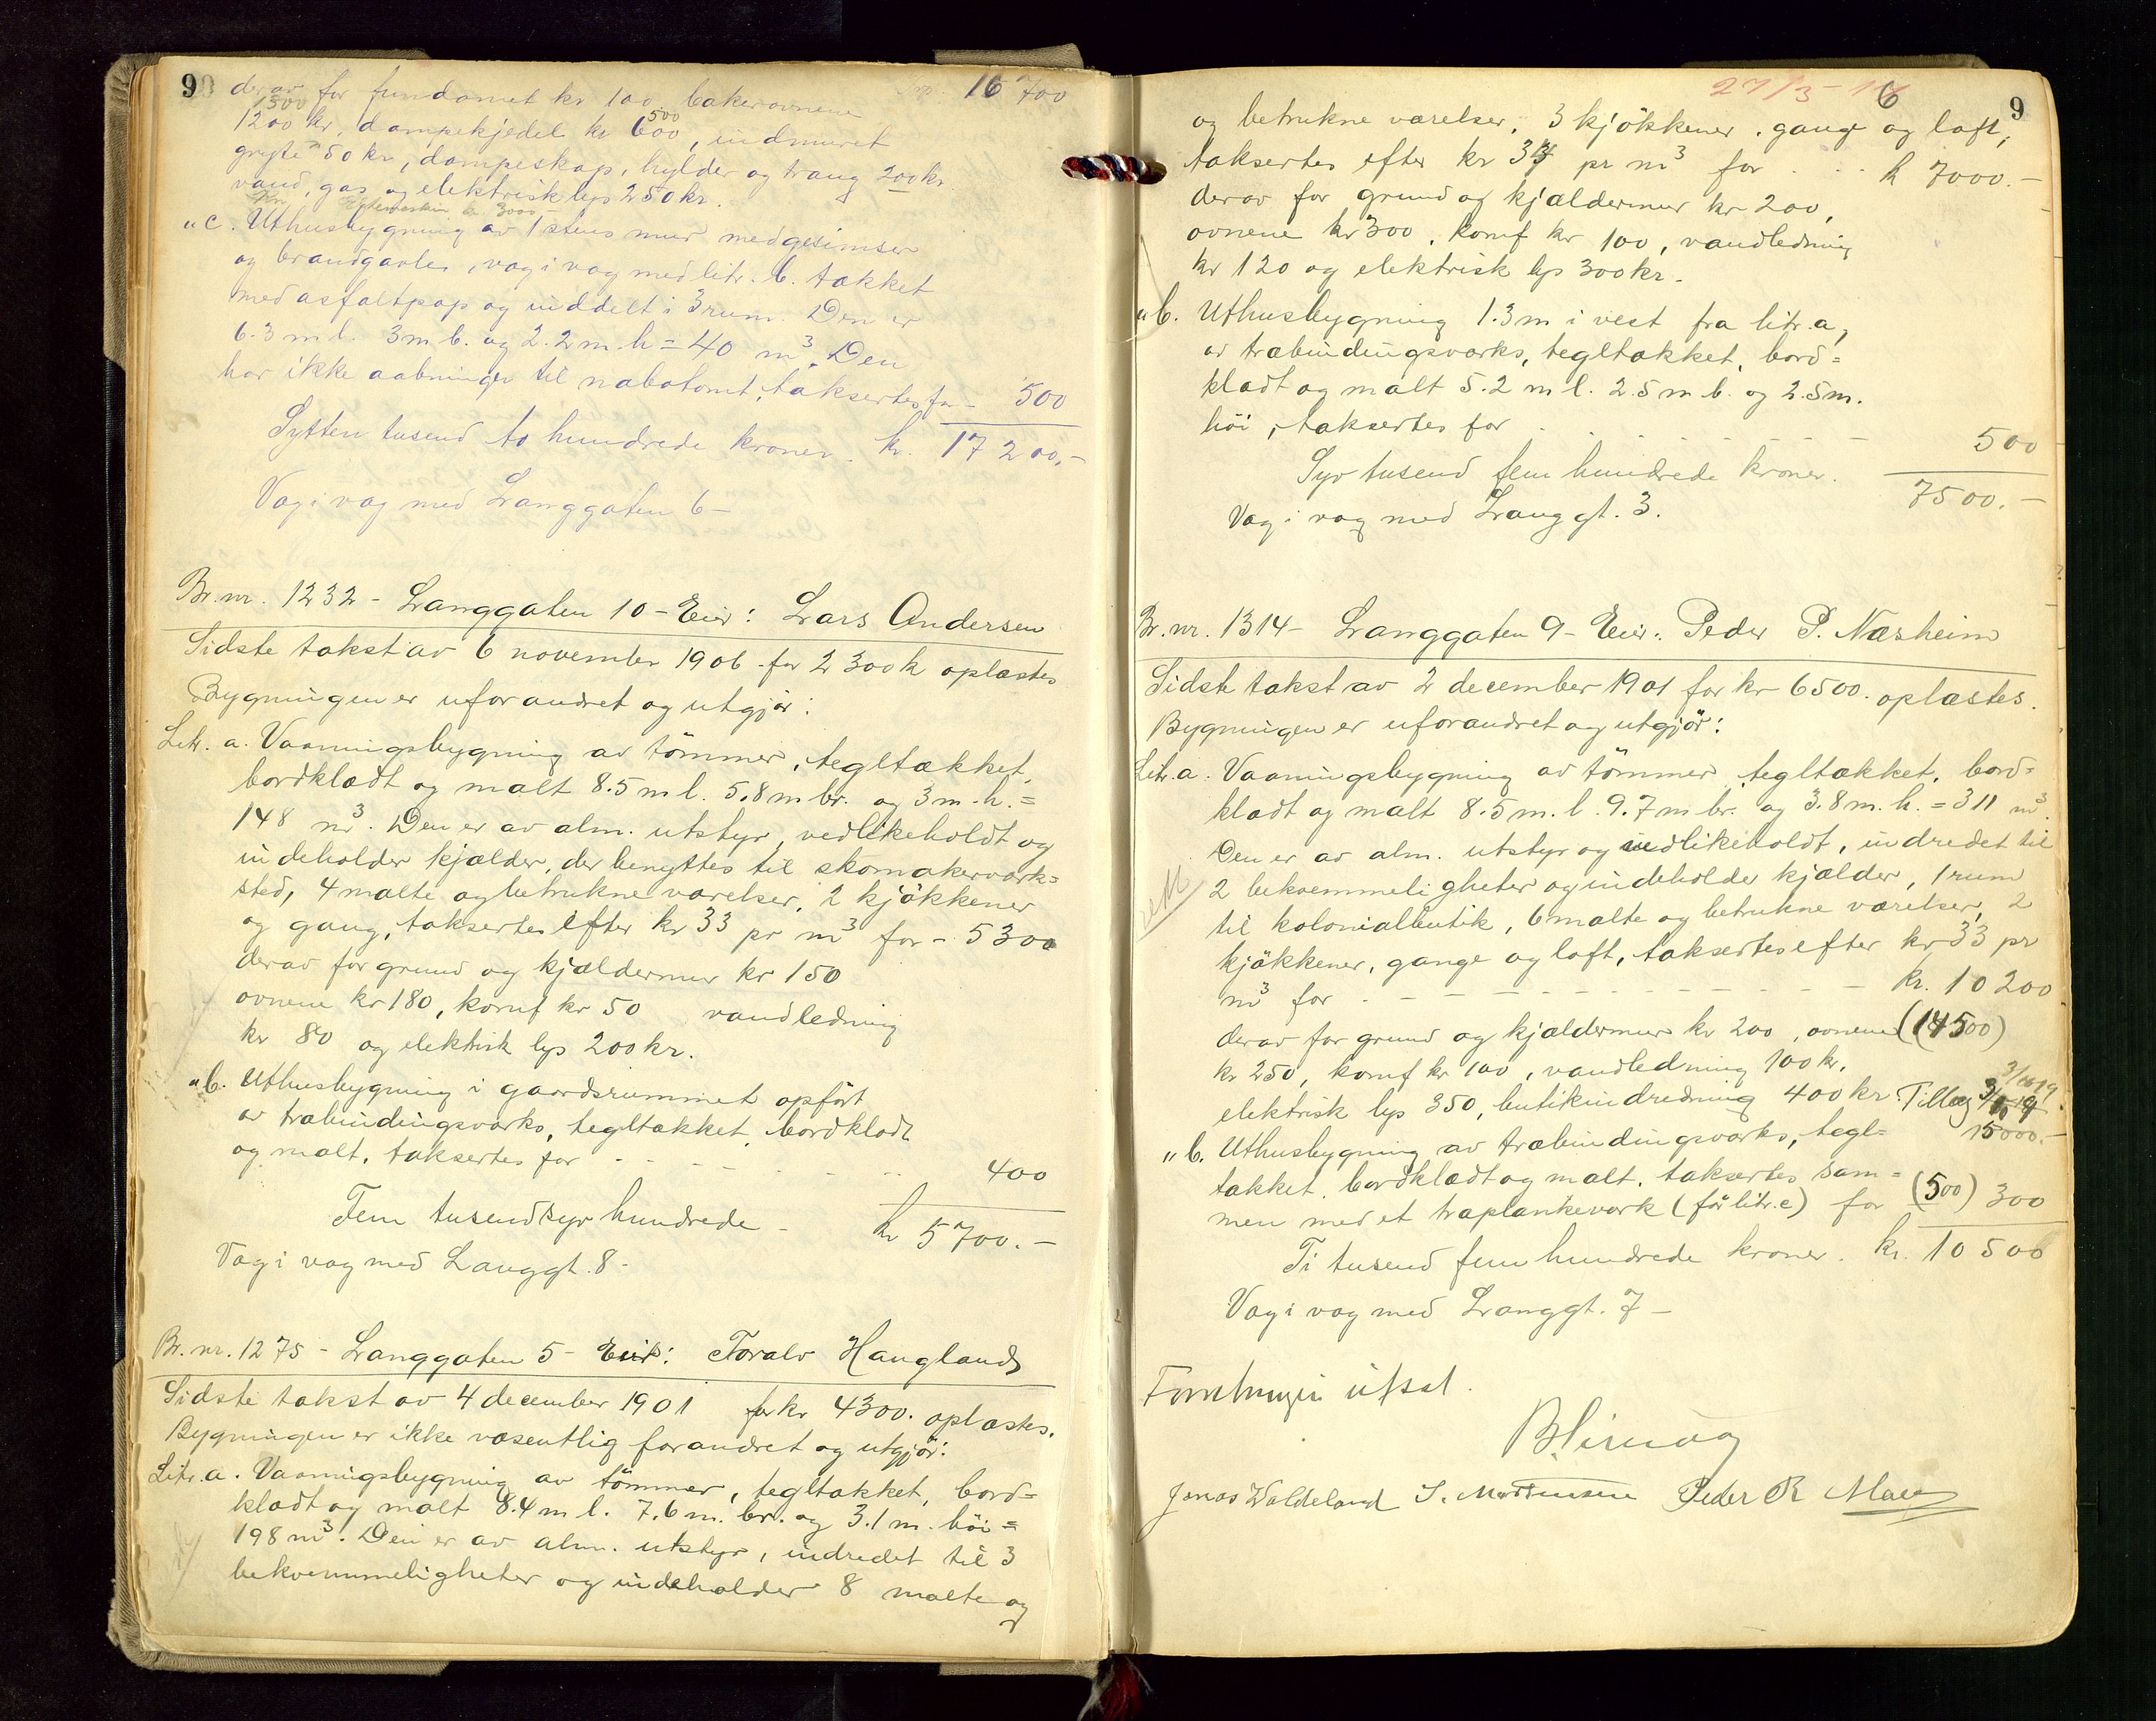 9
derav for fundamet kr 100. bakerovnene 16 700
1500
1200 kr, dampekjedel kr 600, indmuret
500
gryte 50 kr, dampeskap, hylder og traug 200 kr
vand, gas og elektrisk lys 250 kr.
"c. Uthusbygning av 1 stens mur med gesimser
og brandgavler, væg i væg med litr. b. tækket
med asfaltpap og inddelt i 3 rum. Den er
6.3 m l. 3 m b. og 2.2 m. h = 40 m³. Den
har ikke aabninger til nabotomt, taksertes for - 500
Sytten tusend to hundrede kroner. kr. 17 200.-
Væg i væg med Langgaten 6 -
Br. nr. 1232 - Langgaten 10 - Eier: Lars Andersen
Sidste takst av 6 november 1906 for 2300 k oplæstes
Bygningen er uforandret og utgjør:
Litr. a. Vaaningsbygning av tömmer, tegltækket,
bordklædt og malt 8.5 m l. 5.8 m br. og 3 m. h. =
148 m³. Den er av alm. utstyr, vedlikeholdt og
indeholder kjælder, der benyttes til skomakerværk=
sted, 4 malte og betrukne værelser, 2 kjökkener
og gang, taksertes efter kr 33 pr m³ for - 5300
derav for grund og kjældermur kr 150
ovnene kr 180, komf kr 50 vandledning
kr 80 og elektrisk lys 200 kr.
"b. Uthusbygning i gaardsrummet opfört
av træbindingsværks, tegltækket, bordklædt
og malt, taksertes for - - - - - - 400
Fem tusend syv hundrede - kr 5700.-
Væg i væg med Langgt. 8 -
Br. nr. 1275 - Langgaten 5 - Eier: Toralv Hauglands
Sidste takst av 4 december 1901 for kr 4300. oplæstes.
Bygningen er ikke væsentlig forandret og utgjör:
Litr. a. Vaaningsbygning av tömmer, tegltækket, bord=
klædt og malt 8.4 m l. 7.6 m. br. og 3.1 m. höi =
198 m³. Den er av alm. utstyr, indredet til 3
bekvemmeligheter og indeholder 8 malte og
27/3-
6
9
og betrukne værelser, 3 kjökkener, gang og loft,
taksertes efter kr 34 pr m³ for . . . k 7000.-
derav for grund og kjældermur kr 200,
ovnene kr 300, komf kr 100, vandledning
kr 120 og elektrisk lys 300 kr.
"b. Uthusbygning 1.3 m i vest fra litr. a,
av træbindingsværks, tegltækket, bord=
klædt og malt 5.2 m l. 2.5 m b. og 2.5 m.
höi, taksertes for - - - - - - 500
Syv tusend fem hundrede kroner. 7500.-
Væg i væg med Langgt. 3.
Br. nr. 1314 - Langgaten 9 - Eier: Peder P. Næsheim
Sidste takst av 2 december 1901 for kr 6500. oplæstes.
Bygningen er uforandret og utgjör:
Litr. a. Vaaningsbygning av tömmer, tegltækket, bord=
klædt og malt 8.5 m. l. 9.7 m br. og 3.8 m. h. = 311 m³.
Den er av alm. utstyr og vedlikeholdt, indredet til
2 bekvemmeligheter og indeholder kjælder, 1 rum
til kolonialbutik, 6 malte og betrukne værelser, 2
kjökkener, gange og loft, taksertes efter kr 33 pr
m³ for - - - - - - - kr. 10 200
derav for grund og kjældermur kr 200, ovnene (14500)
kr 250, komf kr 100, vandledning 100 kr,
elektrisk lys 350, butikindredning 400 kr. Tillæg
15000.-
"b. Uthusbygning av træbindingsværks, tegl=
tækket, bordklædt og malt, taksertes sam=
men med et træplankeverk (för litr. c) for (500) 300
Ti tusend fem hundrede kroner. kr. 10 500
Væg i væg med Langgt. 7 -
Forretningen utsat.
Jonas Waldeland S. Mortensen Peder R